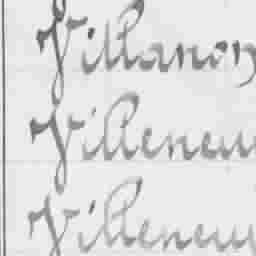 Villanon
Villeneu
Villeneu